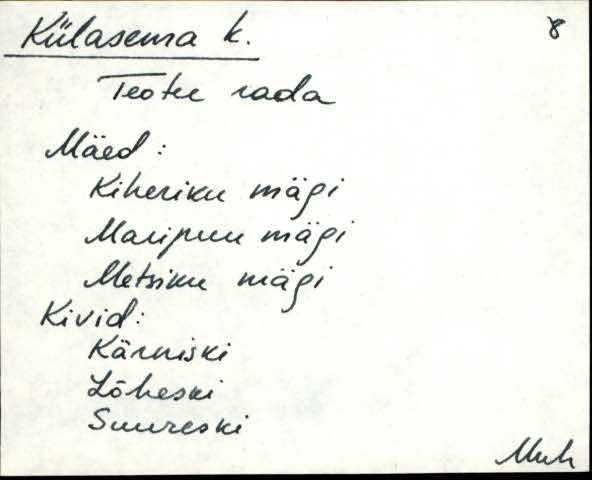 Külasema k.
8
Teotee rada
Mäed:
Kiheriku mägi
Maripuu mägi
Metsiku mägi
Kivid:
Kärniski
Lõheski
Suureski
Muh